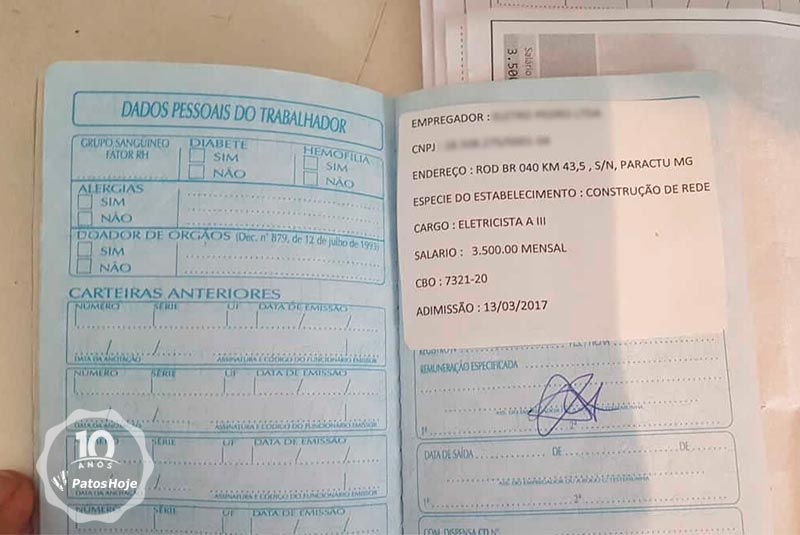 Salário
3.50
DADOS PESSOAIS DO TRABALHADOR
GRUPO SANGUINEO
FATOR RH
DIABETE
SIM
NÃO
HEMOFILIA
SIM
NÃO
ALERGIAS
SIM
NÃO
DOADOR DE ORGÃOS (Dec. nº 879, de 12 de julho de 1993)
SIM
NÃO
CARTEIRAS ANTERIORES
NÚMERO SÉRIE UF DATA DE EMISSÃO
DATA DA ANOTAÇÃO ASSINATURA E CÓDIGO DO FUNCIONÁRIO EMISSOR
NÚMERO SÉRIE UF DATA DE EMISSÃO
DATA DA ANOTAÇÃO ASSINATURA E CÓDIGO DO FUNCIONÁRIO EMISSOR
NÚMERO SÉRIE UF DATA DE EMISSÃO
DATA DA ANOTAÇÃO ASSINATURA E CÓDIGO DO FUNCIONÁRIO EMISSOR
NÚMERO SÉRIE UF DATA DE EMISSÃO
EMPREGADOR :
CNPJ
ENDEREÇO : ROD BR 040 KM 43,5 , S/N, PARACTU MG
ESPECIE DO ESTABELECIMENTO : CONSTRUÇÃO DE REDE
CARGO : ELETRICISTA A III
SALARIO : 3.500.00 MENSAL
CBO : 7321-20
ADIMISSÃO : 13/03/2017
REGISTRO Nº FLS./FICHA
REMUNERAÇÃO ESPECIFICADA
1º 2º
DATA DE SAÍDA DE DE
1º 2º
COM. DISPENSA CD Nº
10
ANOS
PatosHoje